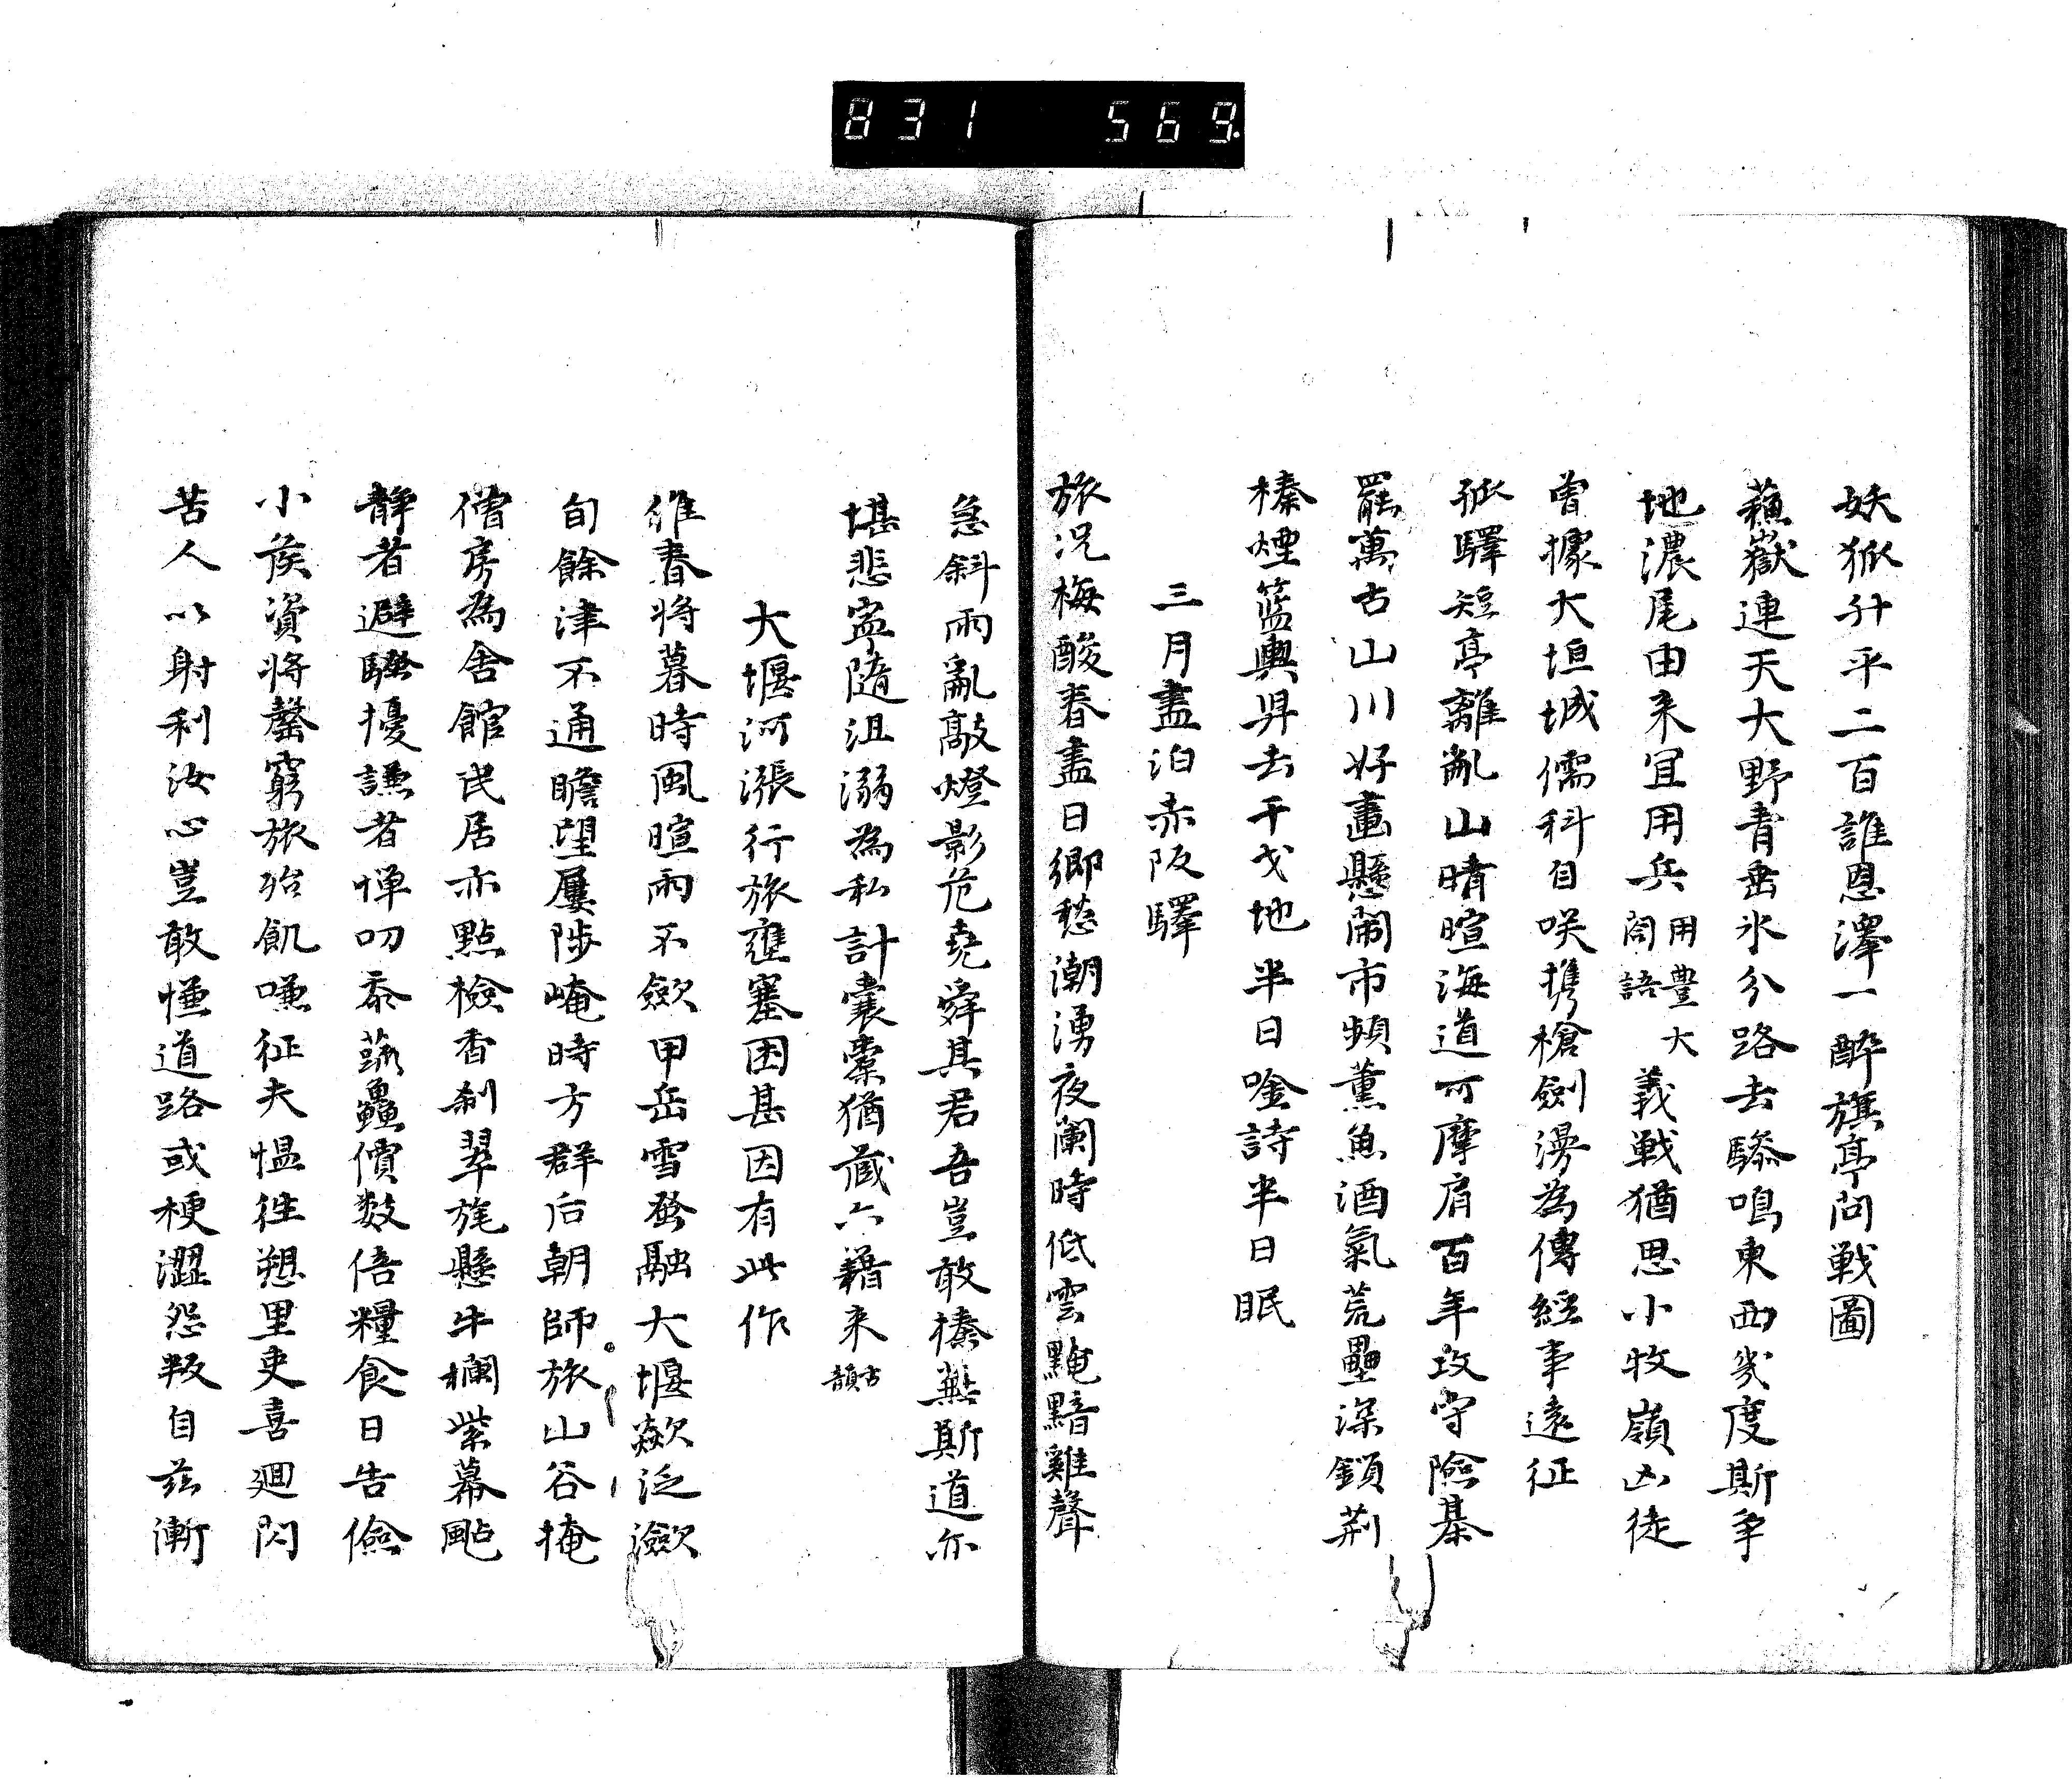 831 569.
妖狐升平二百誰恩澤一酔旗亭問戦圖
蘓嶽連天大野青岳氷分路去驂鳴東西幾度斯争
地濃尾由来宜用兵用豊大閤語義戦猶思小牧嶺凶徒
曽據大垣城儒科自咲携槍劍漫為傳經事遠征
孤驛短亭離亂山晴暄海道可摩肩百年攻守險棊
罷萬古山川好畫懸閙市頻薫魚酒氣荒壘深鎖荆
榛煙籃輿舁去干戈地半日唫詩半日眠
三月盡泊赤阪驛
旅况梅酸春盡日鄉愁潮湧夜闌時低雲黤黯雞聲
急斜雨亂敲燈影危堯舜其君吾豈敢榛蕪斯道亦
堪悲寧隨沮溺為私計囊橐猶藏六籍来古韻
大堰河漲行旅壅塞困甚因有此作
維春将暮時風暄雨不歛甲岳雪發融大堰歘泛瀲
旬餘津不通瞻望屢陟崦時方群后朝師旅山谷掩
僧房為舎館民居亦點檢香刹翠旄懸牛欄紫幕颭
静者避騒擾謙者憚叨忝蔬鱻價数倍糧食日告儉
小矦資将罄窮旅殆飢嗛征夫愠徃愬里吏喜廻閃
苦人以射利汝心豈敢慊道路或梗澀怨叛自茲漸